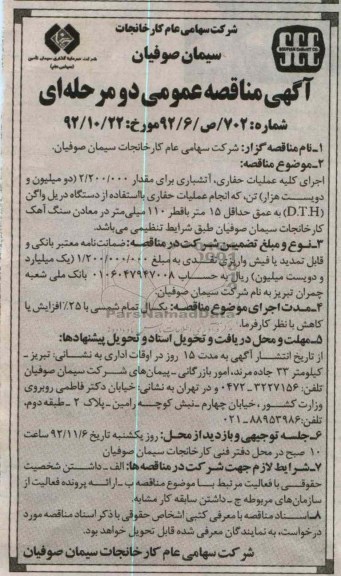 شرکت سهامی عام کارخانجات
سیمان صوفیان
آگهی مناقصه عمومی دو مرحله‌ای
شماره: ۷۰۲/ص/۹۲/۶ مورخ: ۹۲/۱۰/۲۲
۱ـ نام مناقصه گزار: شرکت سهامی عام کارخانجات سیمان صوفیان.
۲ـ موضوع مناقصه:
اجرای کلیه عملیات حفاری، آتشباری برای مقدار ۲/۲۰۰/۰۰۰ (دو میلیون و
دویست هزار) تن، که انجام عملیات حفاری با استفاده از دستگاه دریل واگن
(D.T.H) به عمق حداقل ۱۵ متر باقطر ۱۱۰ میلی‌متر در معادن سنگ آهک
کارخانجات سیمان صوفیان طبق شرایط تنظیمی می‌باشد.
۳ـ نوع و مبلغ تضمین شرکت در مناقصه: ضمانت‌نامه معتبر بانکی و
قابل تمدید یا فیش واریزی نقدی به مبلغ ۱/۲۰۰/۰۰۰/۰۰۰ (یک میلیارد
و دویست میلیون) ریال به حساب ۰۱۰۶۰۴۷۹۴۷۰۰۸ بانک ملی شعبه
چمران تبریز به نام شرکت سیمان صوفیان.
۴ـ مدت اجرای موضوع مناقصه: یکسال تمام شمسی با ۲۵٪ افزایش یا
کاهش با نظر کارفرما.
۵ـ مهلت و محل دریافت و تحویل اسناد و تحویل پیشنهادها:
از تاریخ انتشار آگهی به مدت ۱۵ روز در اوقات اداری به نشانی: تبریز ـ
کیلومتر ۳۳ جاده مرند، امور بازرگانی ـ پیمان‌های شرکت سیمان صوفیان
تلفن: ۳۲۲۷۱۵۶ـ۰۴۷۲ و در تهران به نشانی: خیابان دکتر فاطمی روبروی
وزارت کشور، خیابان چهارم ـ نبش کوچه رامین ـ پلاک ۲ ـ طبقه دوم،
تلفن: ۸۸۹۵۳۹۸۶ـ۰۲۱
۶ـ جلسه توجیهی و بازدید از محل: روز یکشنبه تاریخ ۹۲/۱۱/۶ ساعت
۱۰ صبح در محل دفتر فنی کارخانجات سیمان صوفیان
۷ـ شرایط لازم جهت شرکت در مناقصه‌ها: الف ـ داشتن شخصیت
حقوقی با فعالیت مرتبط با موضوع مناقصه ب ـ ارائه پرونده فعالیت از
سازمان‌های مربوطه ج ـ داشتن سابقه کار مشابه.
۸ـ اسناد مناقصه با معرفی کتبی اشخاص حقوقی با ذکر اسناد مناقصه مورد
درخواست، به نمایندگان معرفی شده قابل تحویل خواهد بود.
شرکت سهامی عام کارخانجات سیمان صوفیان